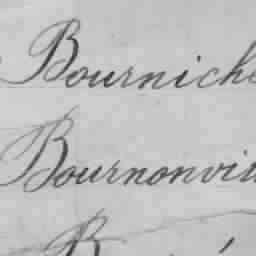 Bourniche
Bournonvil